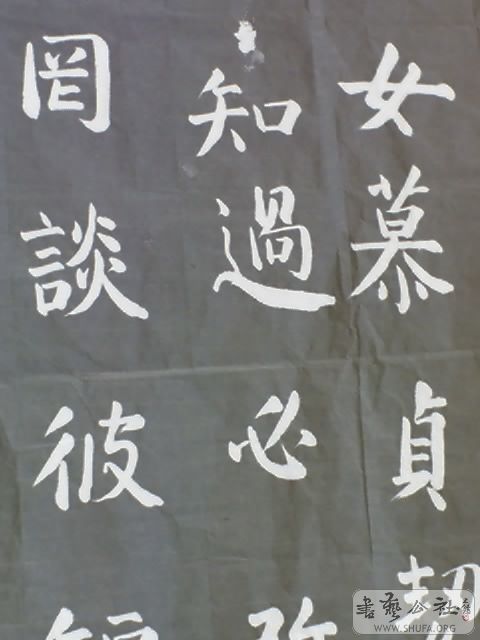 女慕貞
知過必
罔談彼
書藝公社
WWW.SHUFA.ORG